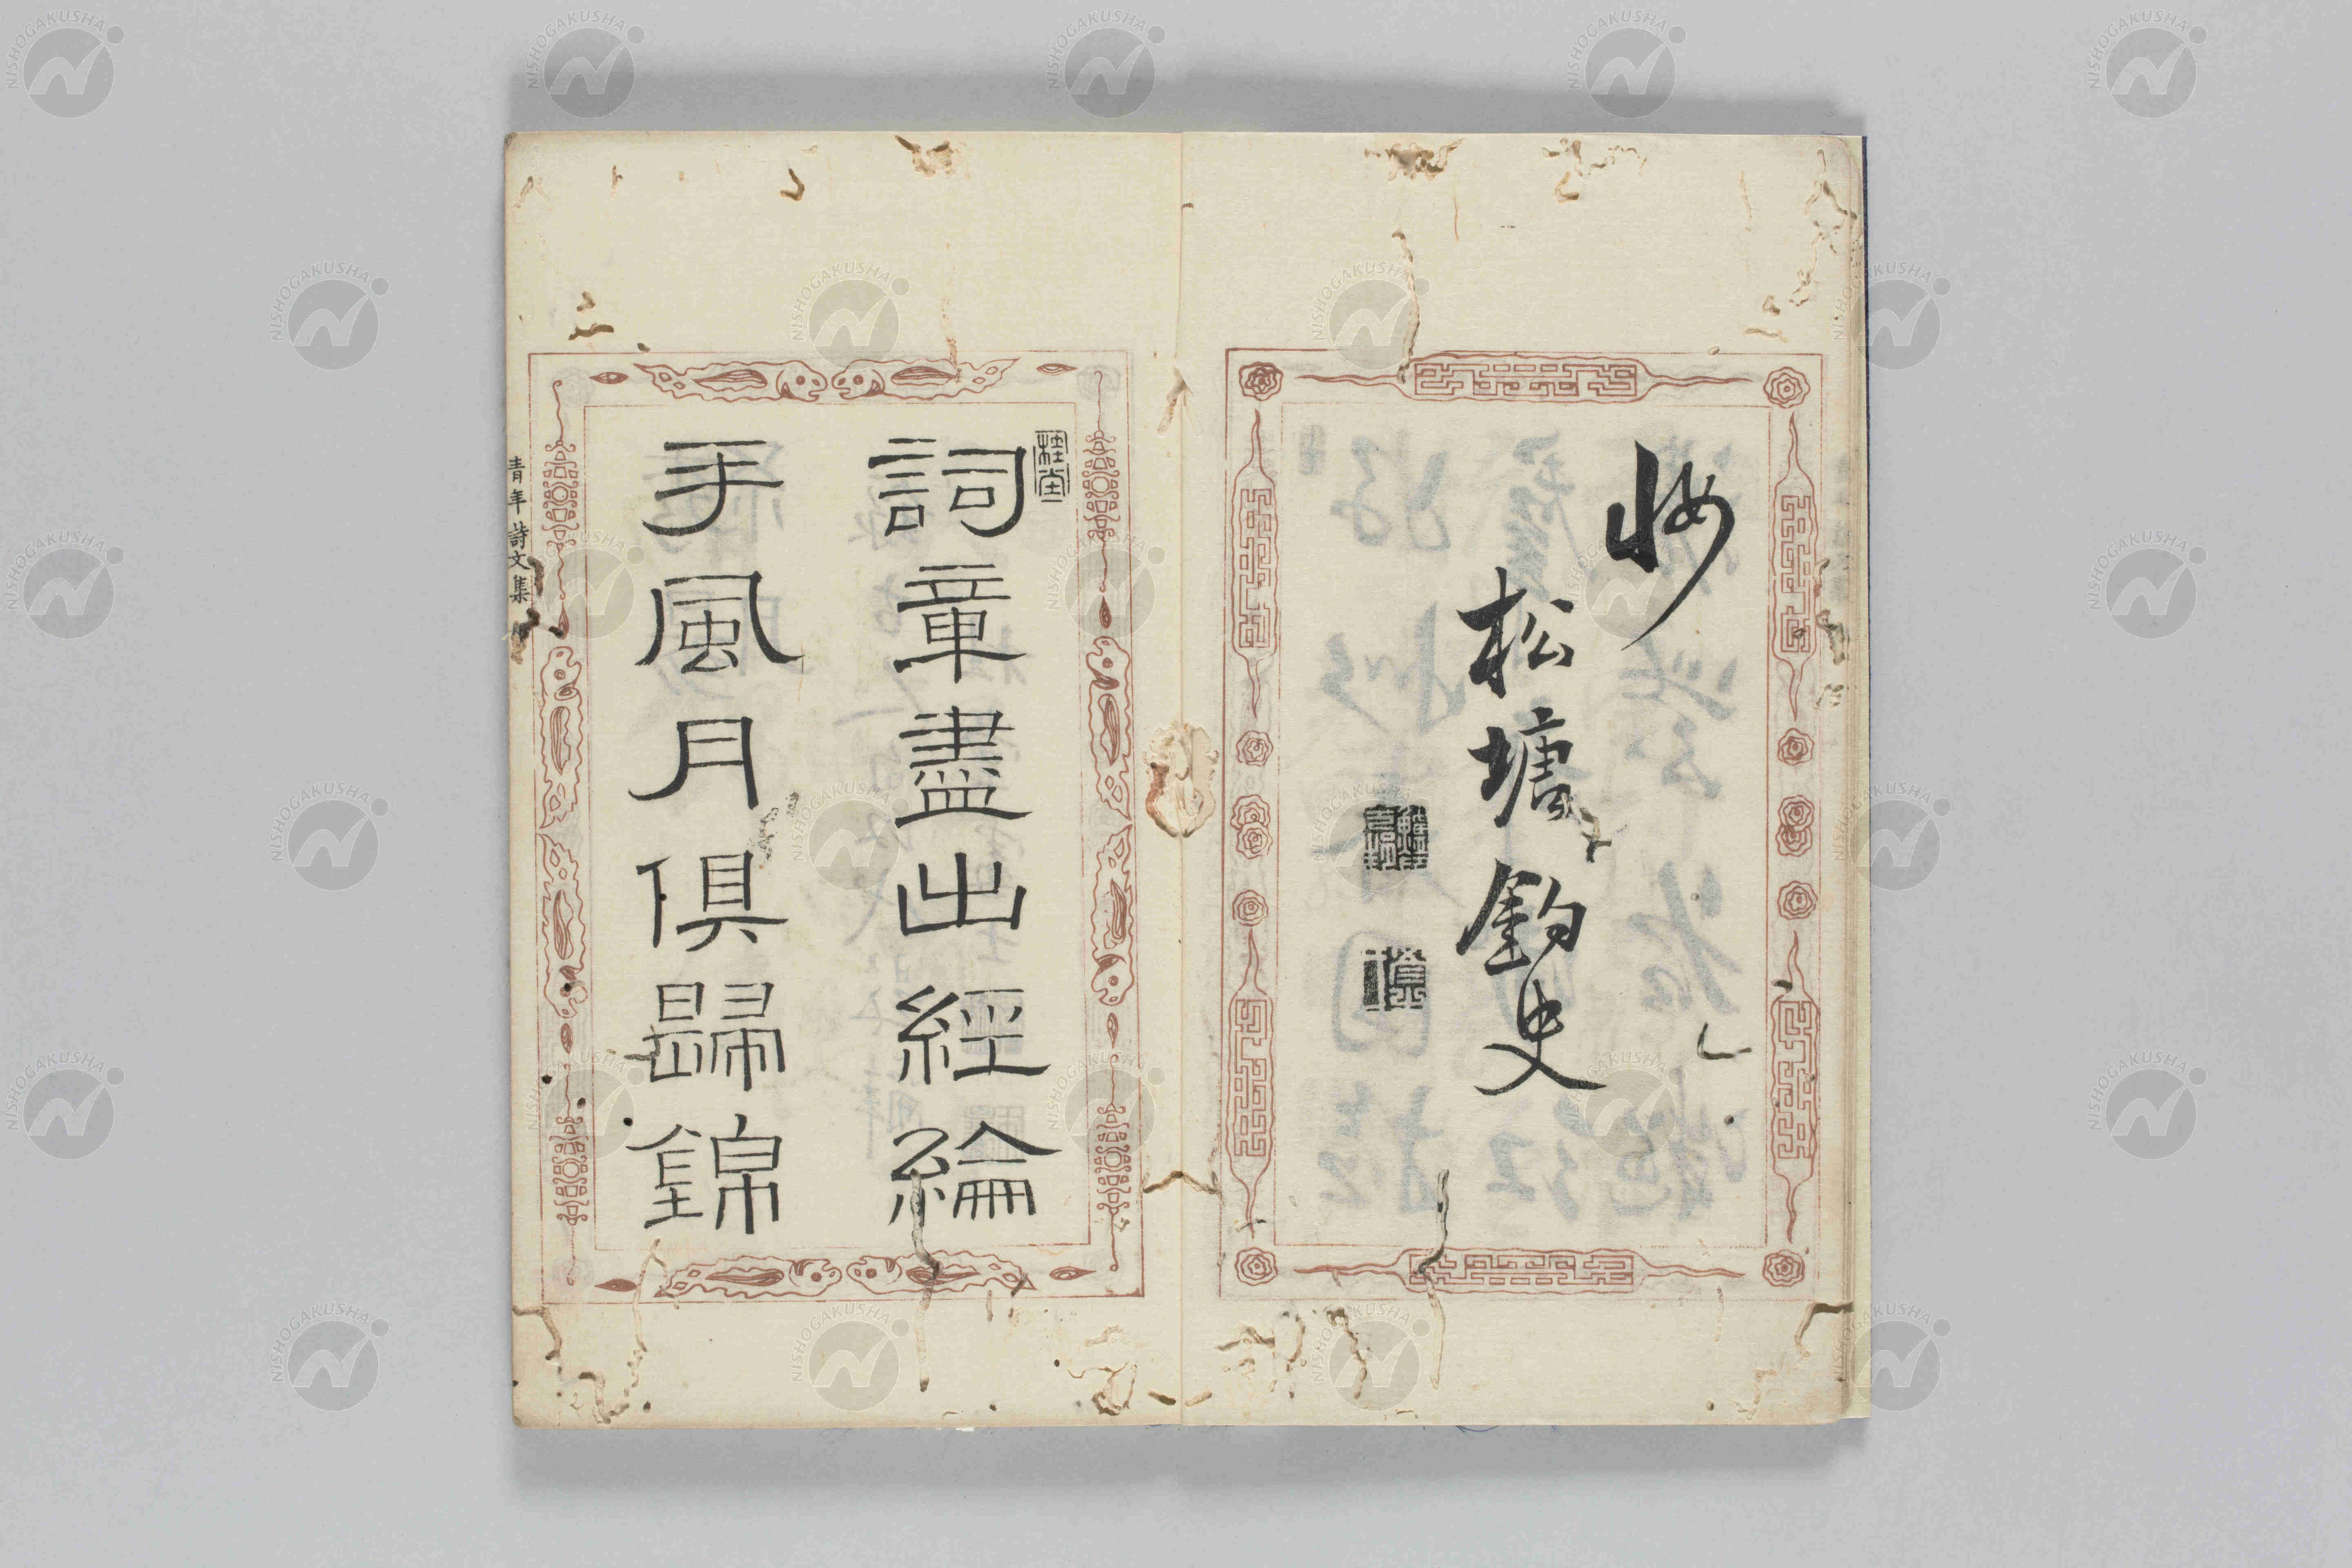 松塘釣史
詞章盡出經綸
手風月俱歸錦
青年詩文集
NISHOGAKUSHA